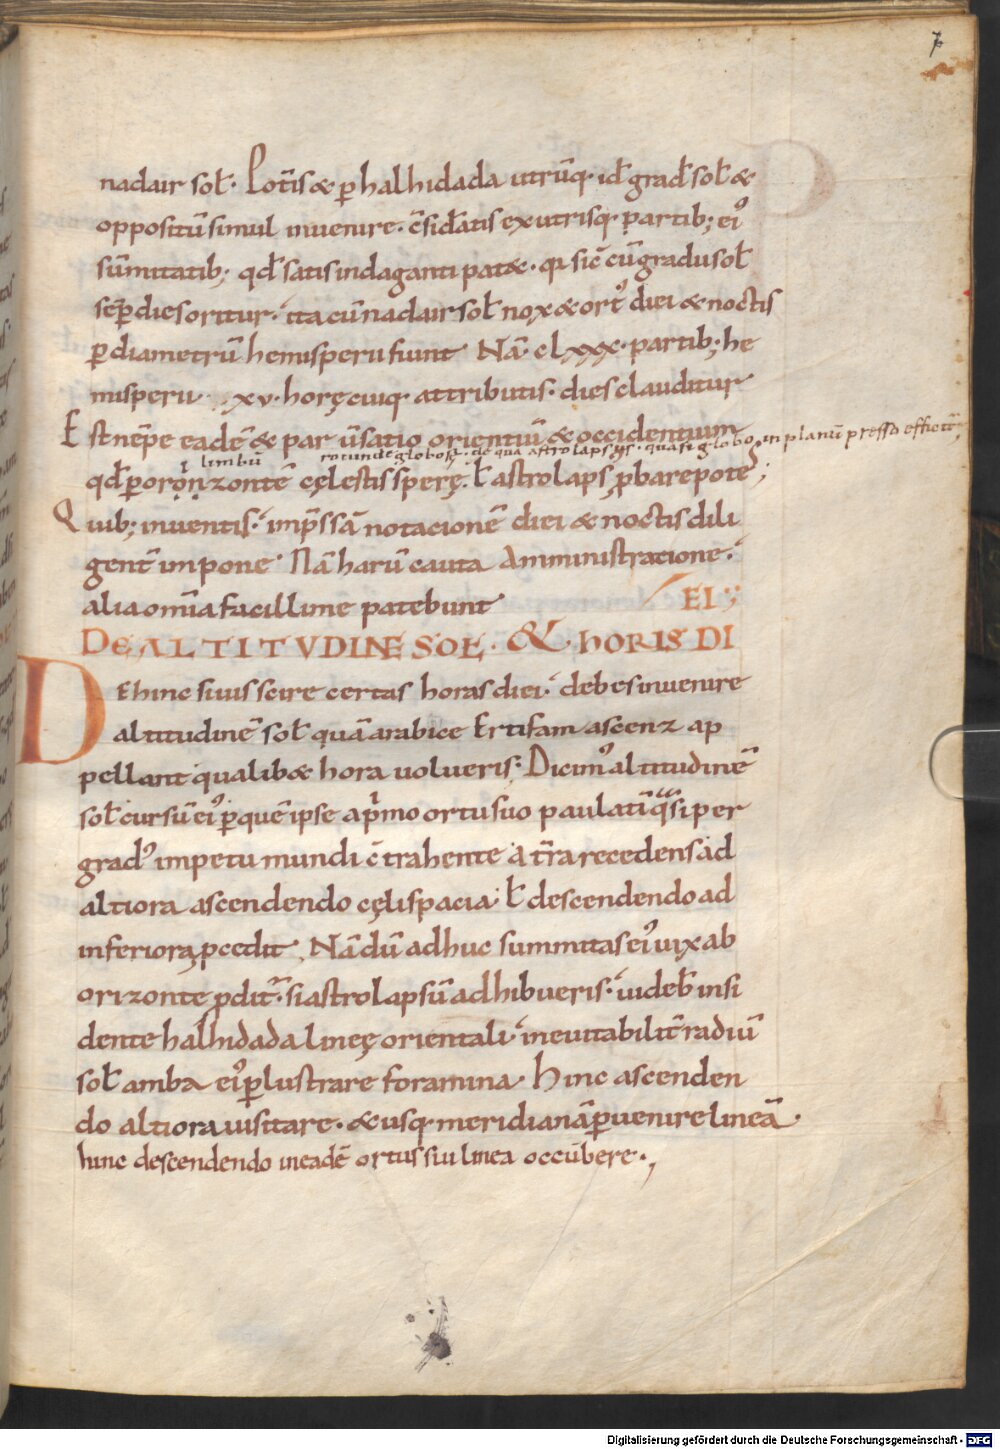 7
nadair sol̄. Potēris & ꝑ halhidada utrūq. id̄ grad̄ sol̄ &
oppositū simul invenire. c̄sid̄atis ex utrisq. partib; ei᾿
sūmitatib; qd̄ satis indaganti pat&. qi sic̄ cū gradu sol̄
sēꝑ dies oritur. ita cū nadair sol̄ nox & ort᾿ diei & noctis
ꝑ diametrū hemisperii fiunt Nā. clxxx. partib; he
misperii xv. horę cuiq. attributis. dies clauditur
Est nēpe eadē & par ūsatio orientiū & occidentium
i limbū rotunde globosę. de qua astrolapsus. quasi globo in planū presso efficit᷑
qd̄ ꝑ orizontē cęlestis sperę. l̄ astrolapsꝰ ꝓbare potes;
Quib; inventis. imp̄ssā notacionē diei & noctis dili
gent̄ inpone Nā harū cauta amministracione.
alia om̄ia facillime patebunt
EI;
DE ALTITVDINE SOL̄. & HORIS DI
Dehinc si vis scire certas horas diei. debes invenire
altitudinē sol̄ quā arabice Ertifam ascenz ap
pellant qualib& hora volueris. Dicim᾿ altitudinē
sol̄ cursū ei᾿ ꝑ quē ipse a p̄mo ortu suo paulatī q̄si per
grad᾿ impetu mundi c̄trahente a t̄ra recedens ad
altiora ascendendo cęli spacia. l̄ descendendo ad
inferiora ꝓcedit Nā dū adhuc summitas ei᾿ vix ab
orizonte ꝓdit᷑. si astrolapsū adhibueris. videb̄ insi
dente halhidada lineę orientali. inevitabilit̄ radiū
sol̄ amba ei᾿ ꝑlustrare foramina. Hinc ascenden
do altiora visitare. & usq. meridianā ꝑvenire lineā.
hinc descendendo in eadē ortus sui linea occūbere.,
Digitalisierung gefördert durch die Deutsche Forschungsgemeinschaft - DFG